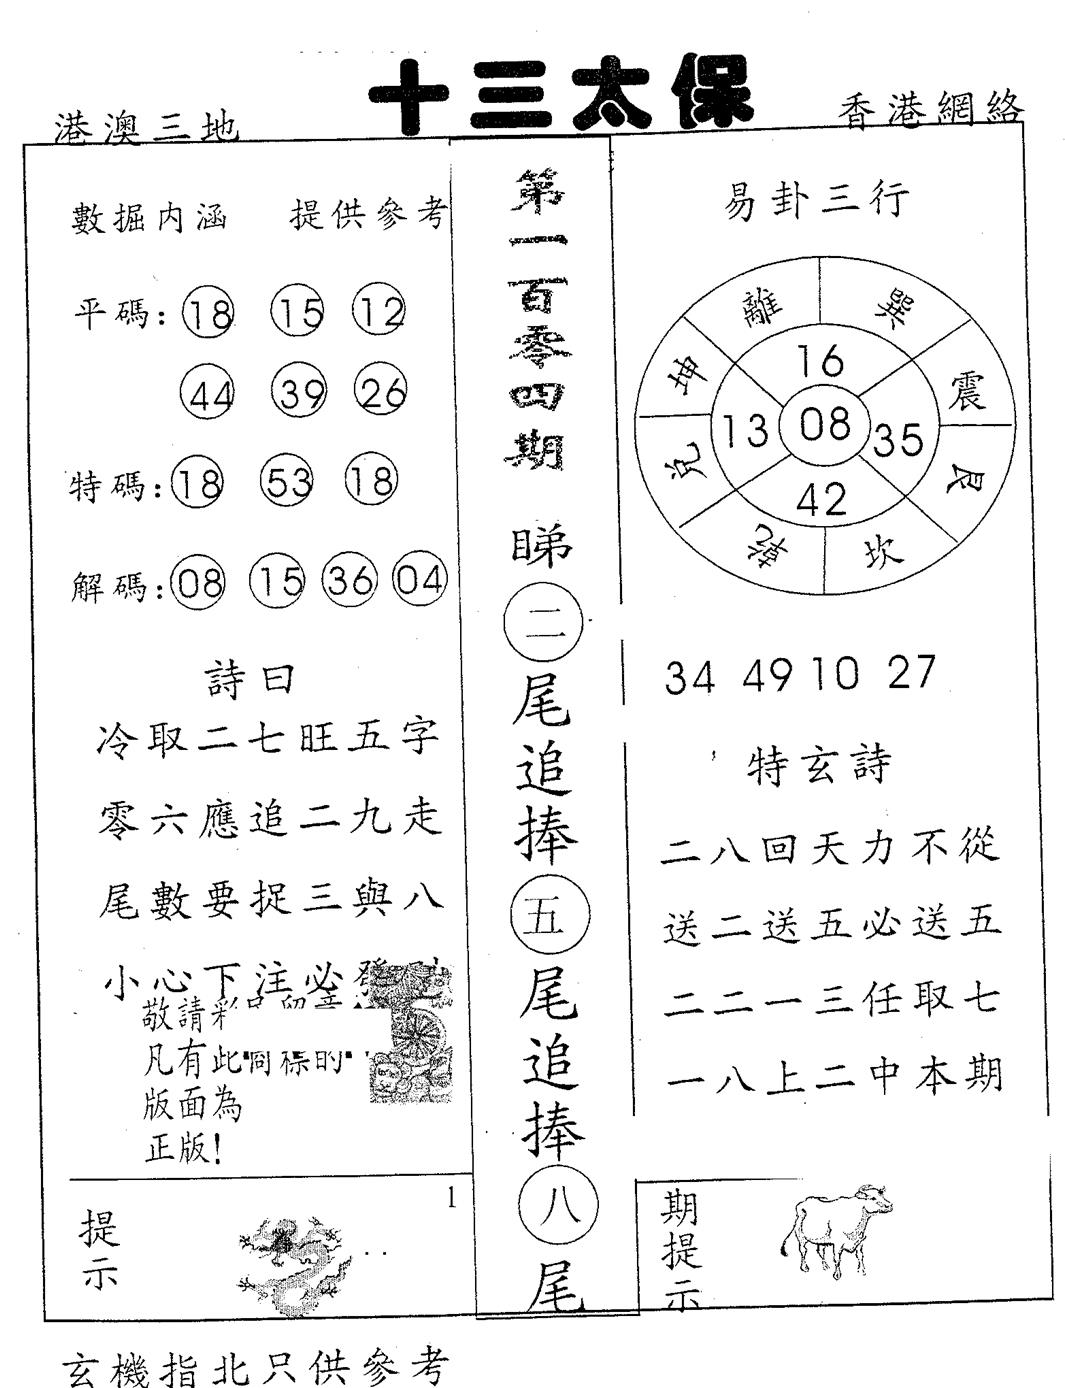 十三太保
港澳三地
香港網絡
數掘内涵 提供參考
平碼: 18 15 12
44 39 26
特碼: 18 53 18
解碼: 08 15 36 04
詩曰
冷取二七旺五字
零六應追二九走
尾數要捉三與八
小心下注必發
敬請彩
凡有此
版面為
正版!
提示
1
第一百零四期
睇二尾追捧五尾追捧八尾
易卦三行
離 巽 震 艮 坎 乾 兌 坤
16
13 08 35
42
34 49 10 27
特玄詩
二八回天力不從
送二送五必送五
二二一三任取七
一八上二中本期
期提示
玄機指北只供參考